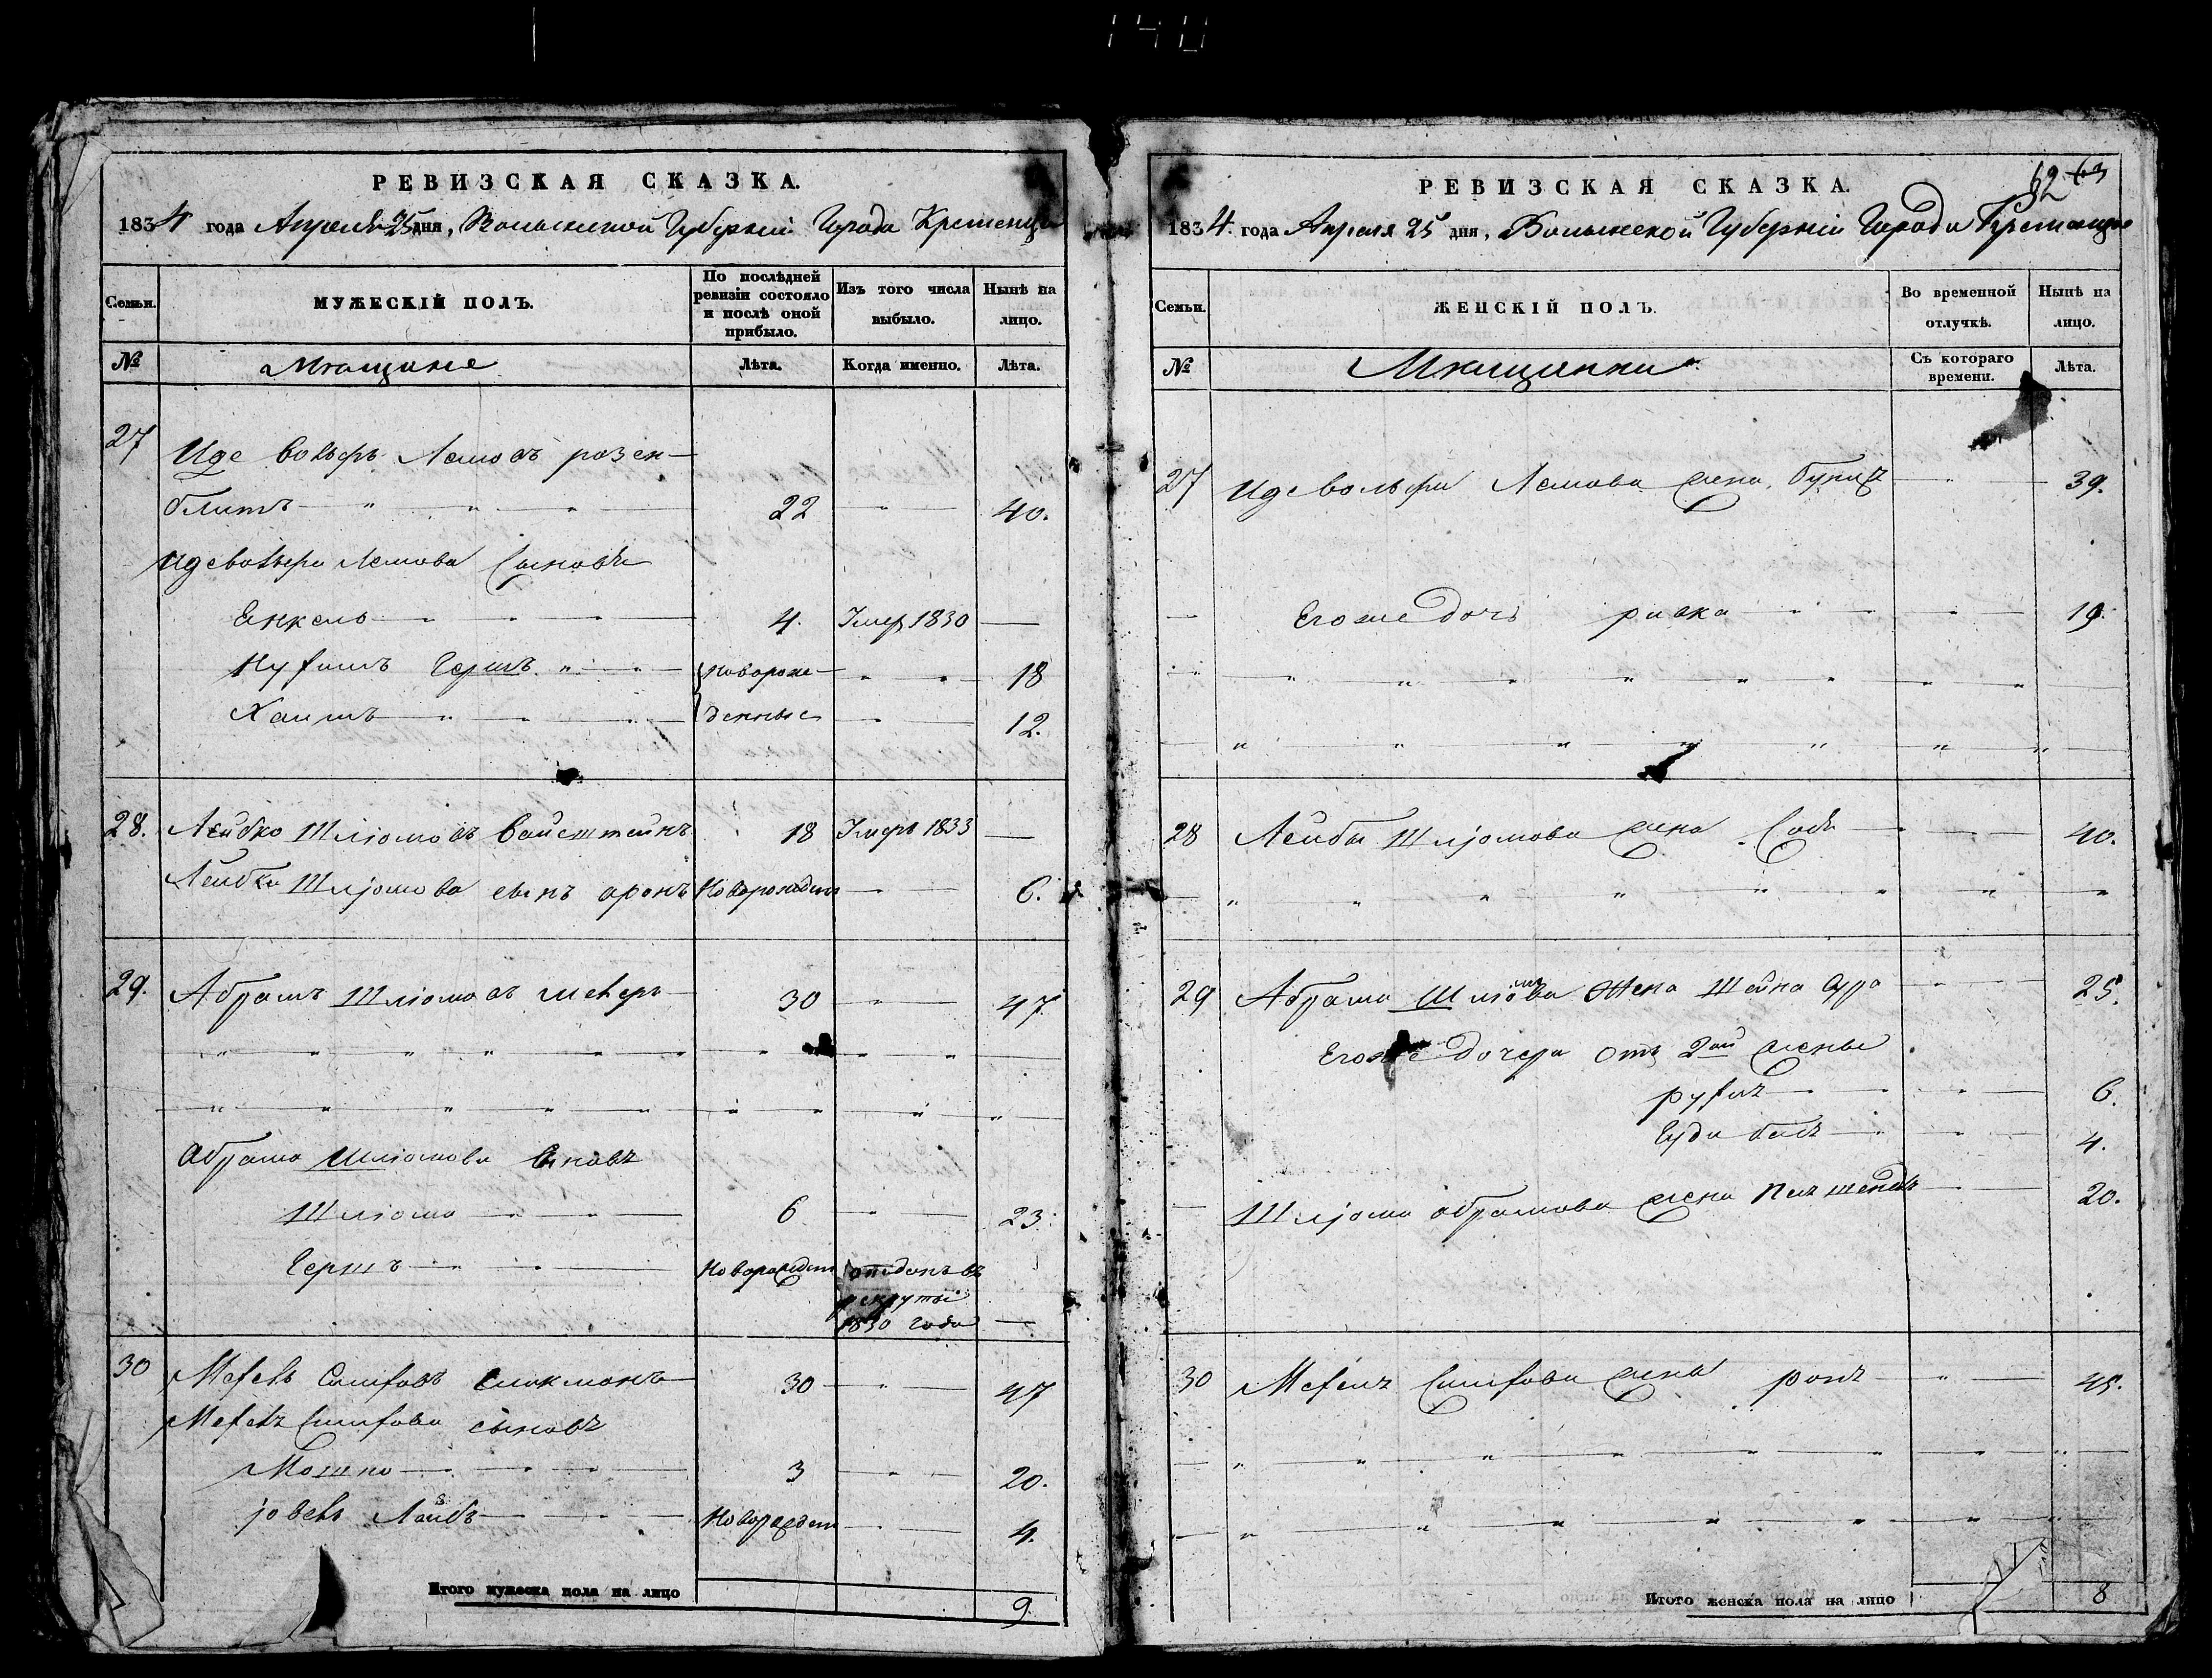 140
РЕВИЗСКАЯ СКАЗКА.
1834 года Апреля 25 дня, Волынской Губерніи Города Кременца
Семьи. МУЖЕСКІЙ ПОЛЪ. По послѣдней ревизіи состояло и послѣ оной прибыло. Изъ того числа выбыло. Нынѣ на лицо.
№ Мещане Лѣта. Когда именно. Лѣта.
27 Иде Вольфъ Лемовъ розен-
блитъ 22 40.
Идевольфа Лемова Сыновъя
Енкель 4. Умер 1830
Нухимъ Гершъ Новорож- 18
Хаимъ денные 12.
28. Лейбко Шліомовъ Вайсштейнъ 18 Умеръ 1833
Лейбки Шліомова сынъ аронъ Новорожден 6.
29. Абрамъ Шліомовъ 30 47.
Абрама Шліомова Сыновъя
Шліома 6 23.
Гершъ Новорожден отданъ въ
рекруты
1830 года
30 30 47
сыновъя
Мошко 3 20.
Лейбъ Новорожден 4.
Итого мужеска пола на лицо 9.
62 63
РЕВИЗСКАЯ СКАЗКА.
1834. года Апреля 25 дня, Волынской Губерніи Города Кременца
Семьи. ЖЕНСКІЙ ПОЛЪ. Во временной отлучкѣ. Нынѣ на лицо.
№ Мещанки Съ котораго времени. Лѣта.
27 Идевольфа Лемова жена 39.
Егоже дочь ривка 19.
28 Лейбы Шліомова жена 40.
29 Абрама Шліомова Жена Шейна Сура 25.
Егоже дочери отъ 2ой жены
рухля 6.
4.
Шліомы абрамова жена 20.
30 жена 45.
Итого женска пола на лицо 8